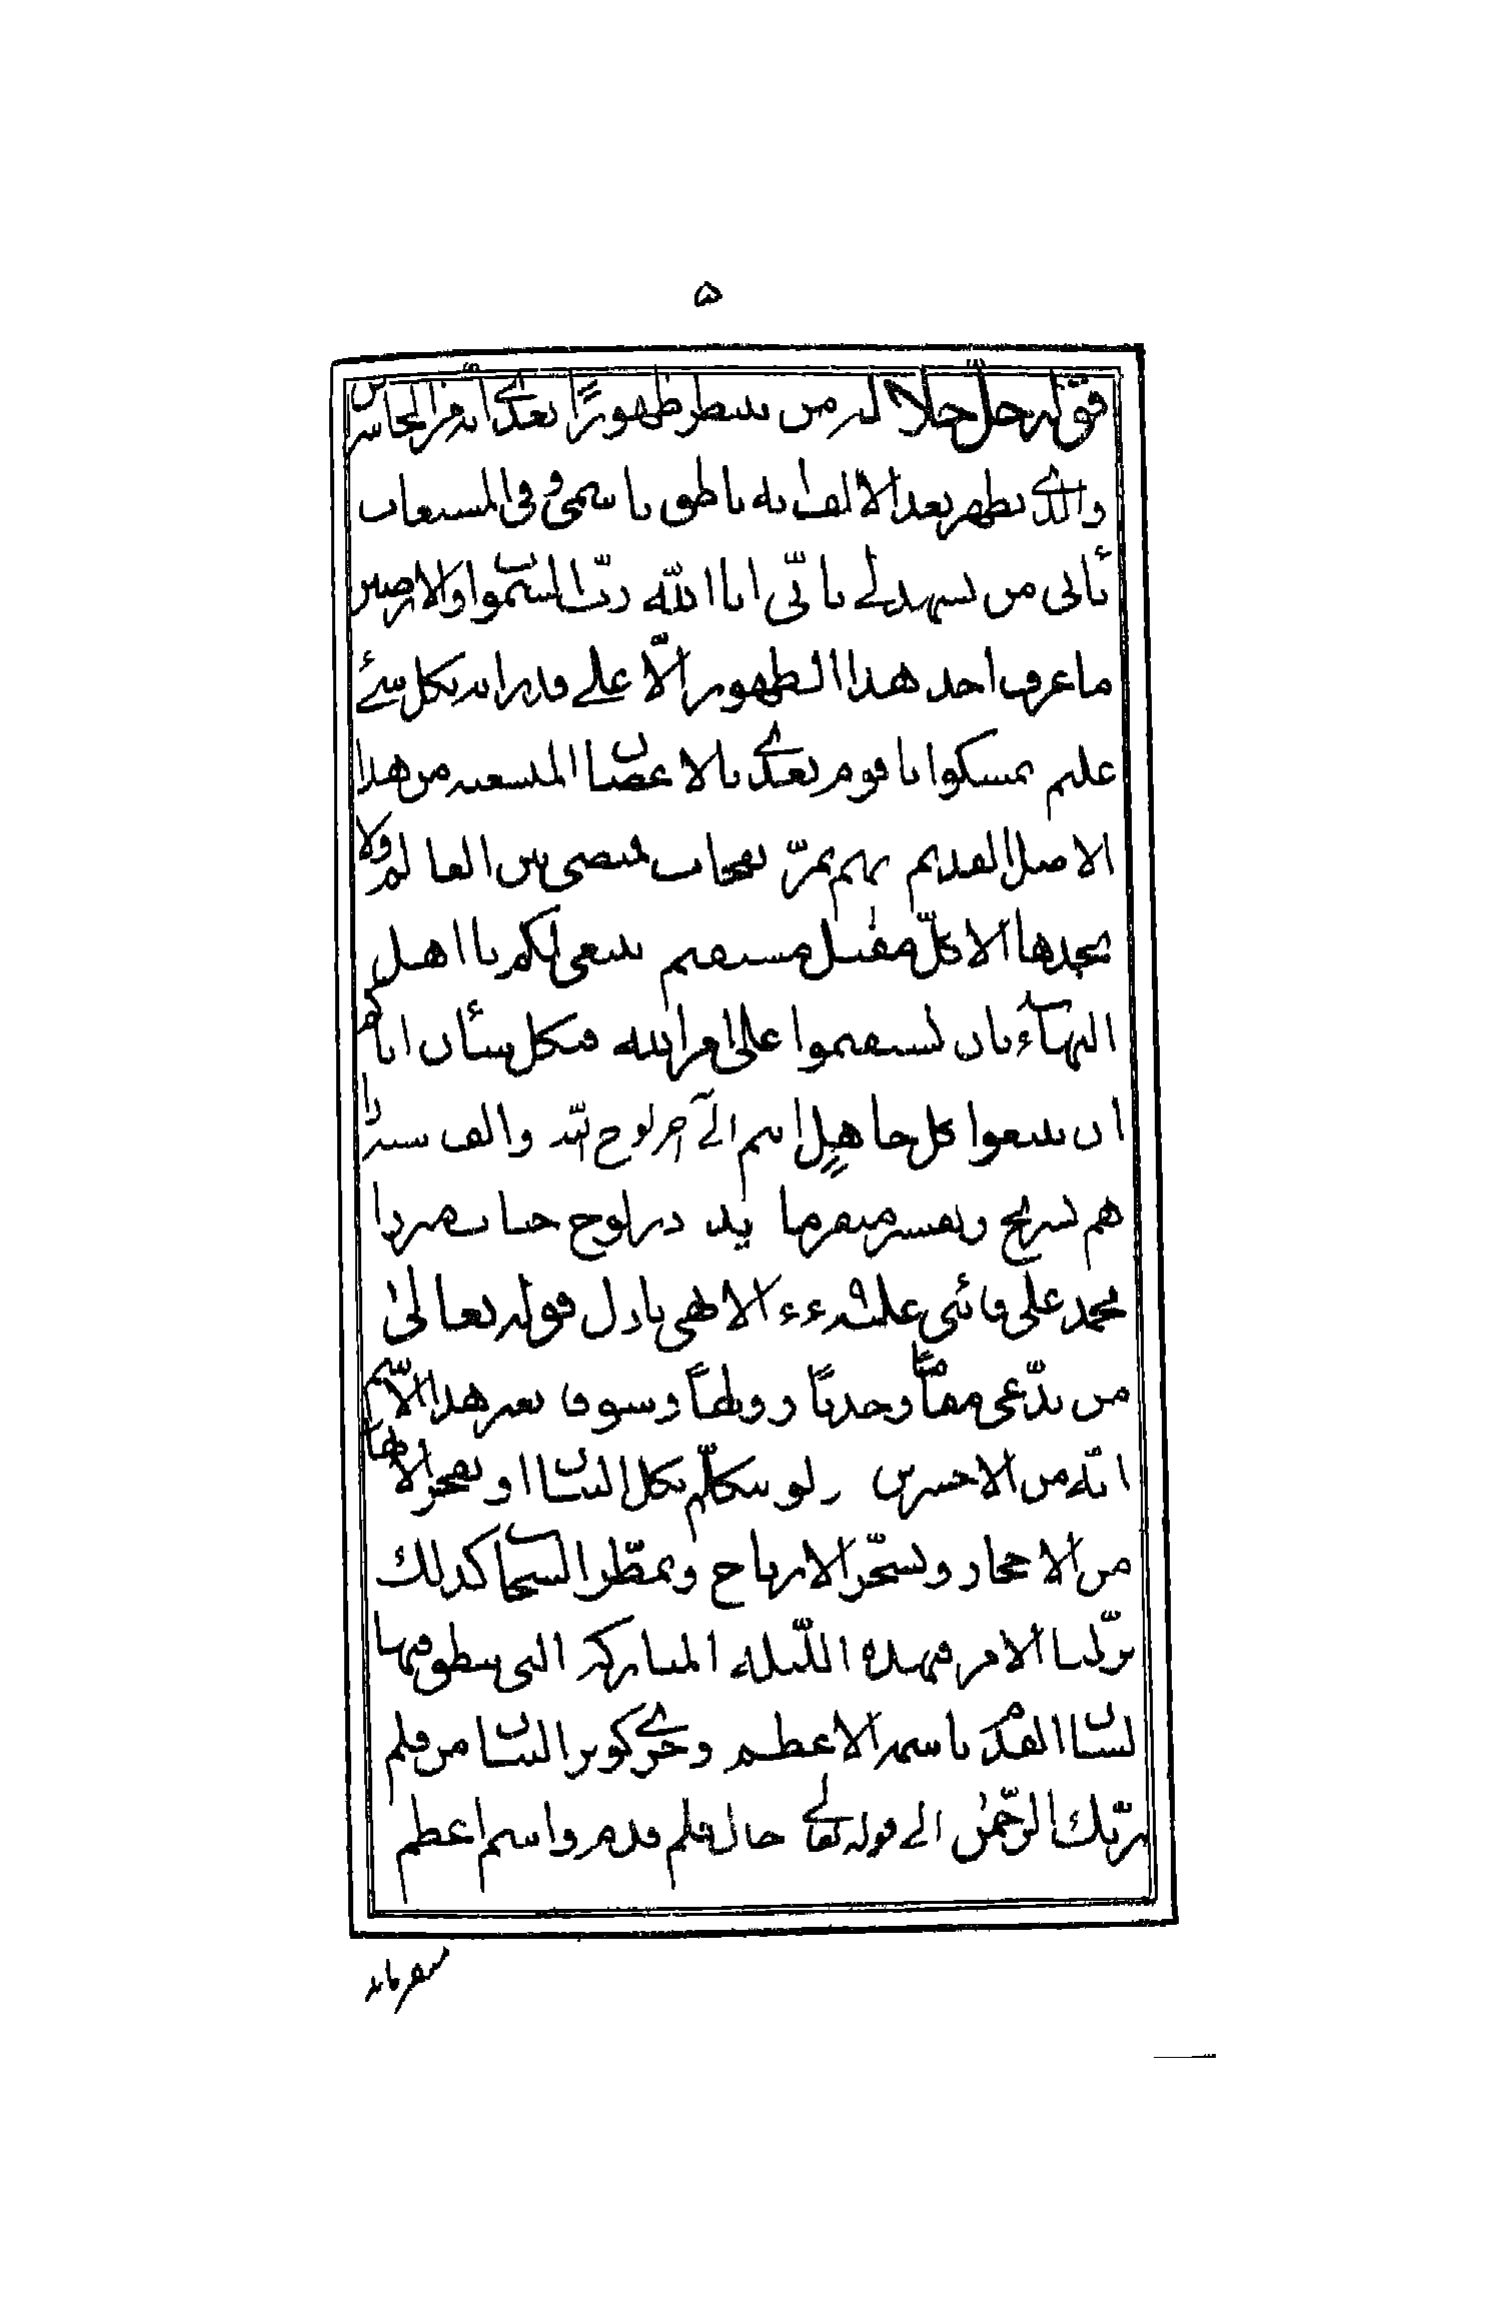 ۵
قوله جلّ جلاله من ينتظر ظهوراً بعدی انه من الخاسرين
والذی يظهر بعد الالف انه ناطق باسمی و فی المستغاث
يأتی من يشهد لی بانّی انا الله ربّ السّموات والارضين
ما عرف احد هذا الظهور الّا علی قدر انه بكل شیء
عليم تمسكوا يا قوم بعدی بالاغصان المنشعبه من هذا
الاصل القديم بهم تمرّ نفحات قميصی بين العالم ولا
يجدها الا كلّ مقبل مستقيم ينبغی لكم يا اهل
البهآء بان تستقيموا علی امر الله فی كل شأن اياكم
ان تتبعوا كل جاهل اثيم الی آخر لوح الله والف سنه را
هم تشريح و تفسير ميفرمايد در لوح جناب ميرزا
محمد علی قائنی عليه ۶۶۹ الابهی نازل قوله تعالی
من يدّعی مقاماً وجذباً و ولهاً و شوقاً بغير هذا الاسم
انّه من الاخسرين ولو يتكلّم بكل البيان او يفجر الانهار
من الاحجار و يسخّر الارياح و يمطّر السحاب كذلك
نزّلنا الامر فی هذه اللّيلة المباركه التی ينطق فيها
لسان القدم باسمه الاعظم و جری كوثر البيان من قلم
ربّك الرّحمن الی قوله تعالی حال قلم قدم و اسم اعظم
ميفرمايد